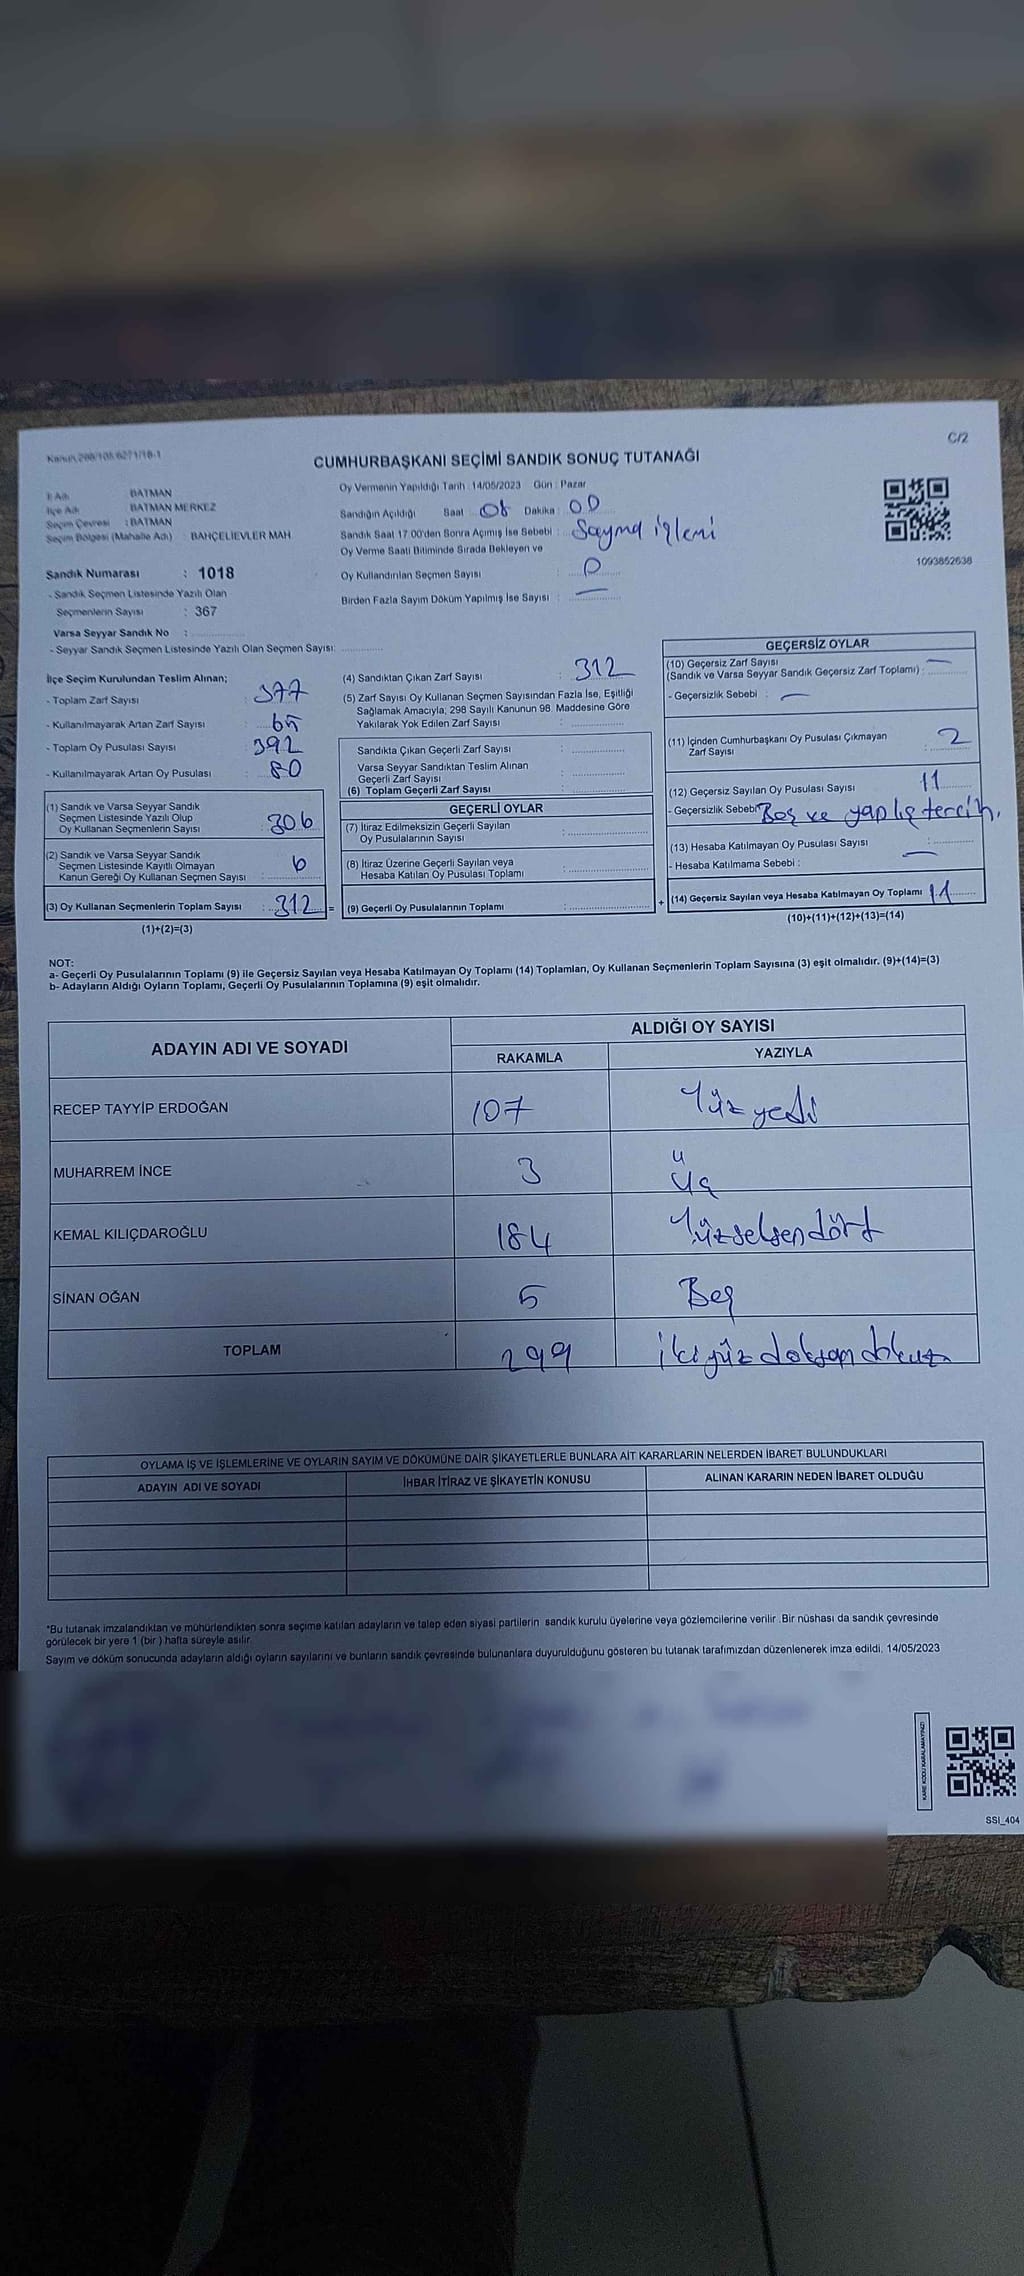 Kanun 298/105/6271/18-1
C/2
CUMHURBAŞKANI SEÇİMİ SANDIK SONUÇ TUTANAĞI
İl Adı BATMAN
İlçe Adı BATMAN MERKEZ
Seçim Çevresi : BATMAN
Seçim Bölgesi (Mahalle Adı) : BAHÇELİEVLER MAH
Sandık Numarası : 1018
- Sandık Seçmen Listesinde Yazılı Olan
Seçmenlerin Sayısı : 367
Varsa Seyyar Sandık No :
- Seyyar Sandık Seçmen Listesinde Yazılı Olan Seçmen Sayısı:
Oy Vermenin Yapıldığı Tarih : 14/05/2023 Gün : Pazar
Sandığın Açıldığı Saat : 08 Dakika : 00
Sandık Saat 17.00'den Sonra Açımış İse Sebebi : Sayma işlemi
Oy Verme Saati Bitiminde Sırada Bekleyen ve
Oy Kullandırılan Seçmen Sayısı : 0
Birden Fazla Sayım Döküm Yapılmış İse Sayısı : —
1093852638
İlçe Seçim Kurulundan Teslim Alınan;
- Toplam Zarf Sayısı : 377
- Kullanılmayarak Artan Zarf Sayısı : 65
- Toplam Oy Pusulası Sayısı : 392
- Kullanılmayarak Artan Oy Pusulası : 80
(1) Sandık ve Varsa Seyyar Sandık
Seçmen Listesinde Yazılı Olup
Oy Kullanan Seçmenlerin Sayısı : 306
(2) Sandık ve Varsa Seyyar Sandık
Seçmen Listesinde Kayıtlı Olmayan
Kanun Gereği Oy Kullanan Seçmen Sayısı : 6
(3) Oy Kullanan Seçmenlerin Toplam Sayısı : 312 =
(1)+(2)=(3)
(4) Sandıktan Çıkan Zarf Sayısı : 312
(5) Zarf Sayısı Oy Kullanan Seçmen Sayısından Fazla İse, Eşitliği
Sağlamak Amacıyla; 298 Sayılı Kanunun 98. Maddesine Göre
Yakılarak Yok Edilen Zarf Sayısı :
Sandıkta Çıkan Geçerli Zarf Sayısı :
Varsa Seyyar Sandıktan Teslim Alınan
Geçerli Zarf Sayısı :
(6) Toplam Geçerli Zarf Sayısı :
GEÇERLİ OYLAR
(7) İtiraz Edilmeksizin Geçerli Sayılan
Oy Pusulalarının Sayısı :
(8) İtiraz Üzerine Geçerli Sayılan veya
Hesaba Katılan Oy Pusulası Toplamı :
(9) Geçerli Oy Pusulalarının Toplamı : +
GEÇERSİZ OYLAR
(10) Geçersiz Zarf Sayısı —
(Sandık ve Varsa Seyyar Sandık Geçersiz Zarf Toplamı) :
- Geçersizlik Sebebi : —
(11) İçinden Cumhurbaşkanı Oy Pusulası Çıkmayan
Zarf Sayısı : 2
(12) Geçersiz Sayılan Oy Pusulası Sayısı : 11
- Geçersizlik Sebebi Boş ve yaplış tercih.
(13) Hesaba Katılmayan Oy Pusulası Sayısı :
- Hesaba Katılmama Sebebi : —
(14) Geçersiz Sayılan veya Hesaba Katılmayan Oy Toplamı : 11
(10)+(11)+(12)+(13)=(14)
NOT:
a- Geçerli Oy Pusulalarının Toplamı (9) ile Geçersiz Sayılan veya Hesaba Katılmayan Oy Toplamı (14) Toplamları, Oy Kullanan Seçmenlerin Toplam Sayısına (3) eşit olmalıdır. (9)+(14)=(3)
b- Adayların Aldığı Oyların Toplamı, Geçerli Oy Pusulalarının Toplamına (9) eşit olmalıdır.
ADAYIN ADI VE SOYADI ALDIĞI OY SAYISI
RAKAMLA YAZIYLA
RECEP TAYYİP ERDOĞAN 107 Yüz yedi
MUHARREM İNCE 3 Üç
KEMAL KILIÇDAROĞLU 184 Yüzseksendört
SİNAN OĞAN 5 Beş
TOPLAM 299 ikiyüz doksan dokuz
OYLAMA İŞ VE İŞLEMLERİNE VE OYLARIN SAYIM VE DÖKÜMÜNE DAİR ŞİKAYETLERLE BUNLARA AİT KARARLARIN NELERDEN İBARET BULUNDUKLARI
ADAYIN ADI VE SOYADI İHBAR İTİRAZ VE ŞİKAYETİN KONUSU ALINAN KARARIN NEDEN İBARET OLDUĞU
*Bu tutanak imzalandıktan ve mühürlendikten sonra seçime katılan adayların ve talep eden siyasi partilerin sandık kurulu üyelerine veya gözlemcilerine verilir. Bir nüshası da sandık çevresinde
görülecek bir yere 1 (bir) hafta süreyle asılır.
Sayım ve döküm sonucunda adayların aldığı oyların sayılarını ve bunların sandık çevresinde bulunanlara duyurulduğunu gösteren bu tutanak tarafımızdan düzenlenerek imza edildi. 14/05/2023
KARE KODU KARALAMAYINIZ!
SSİ_404